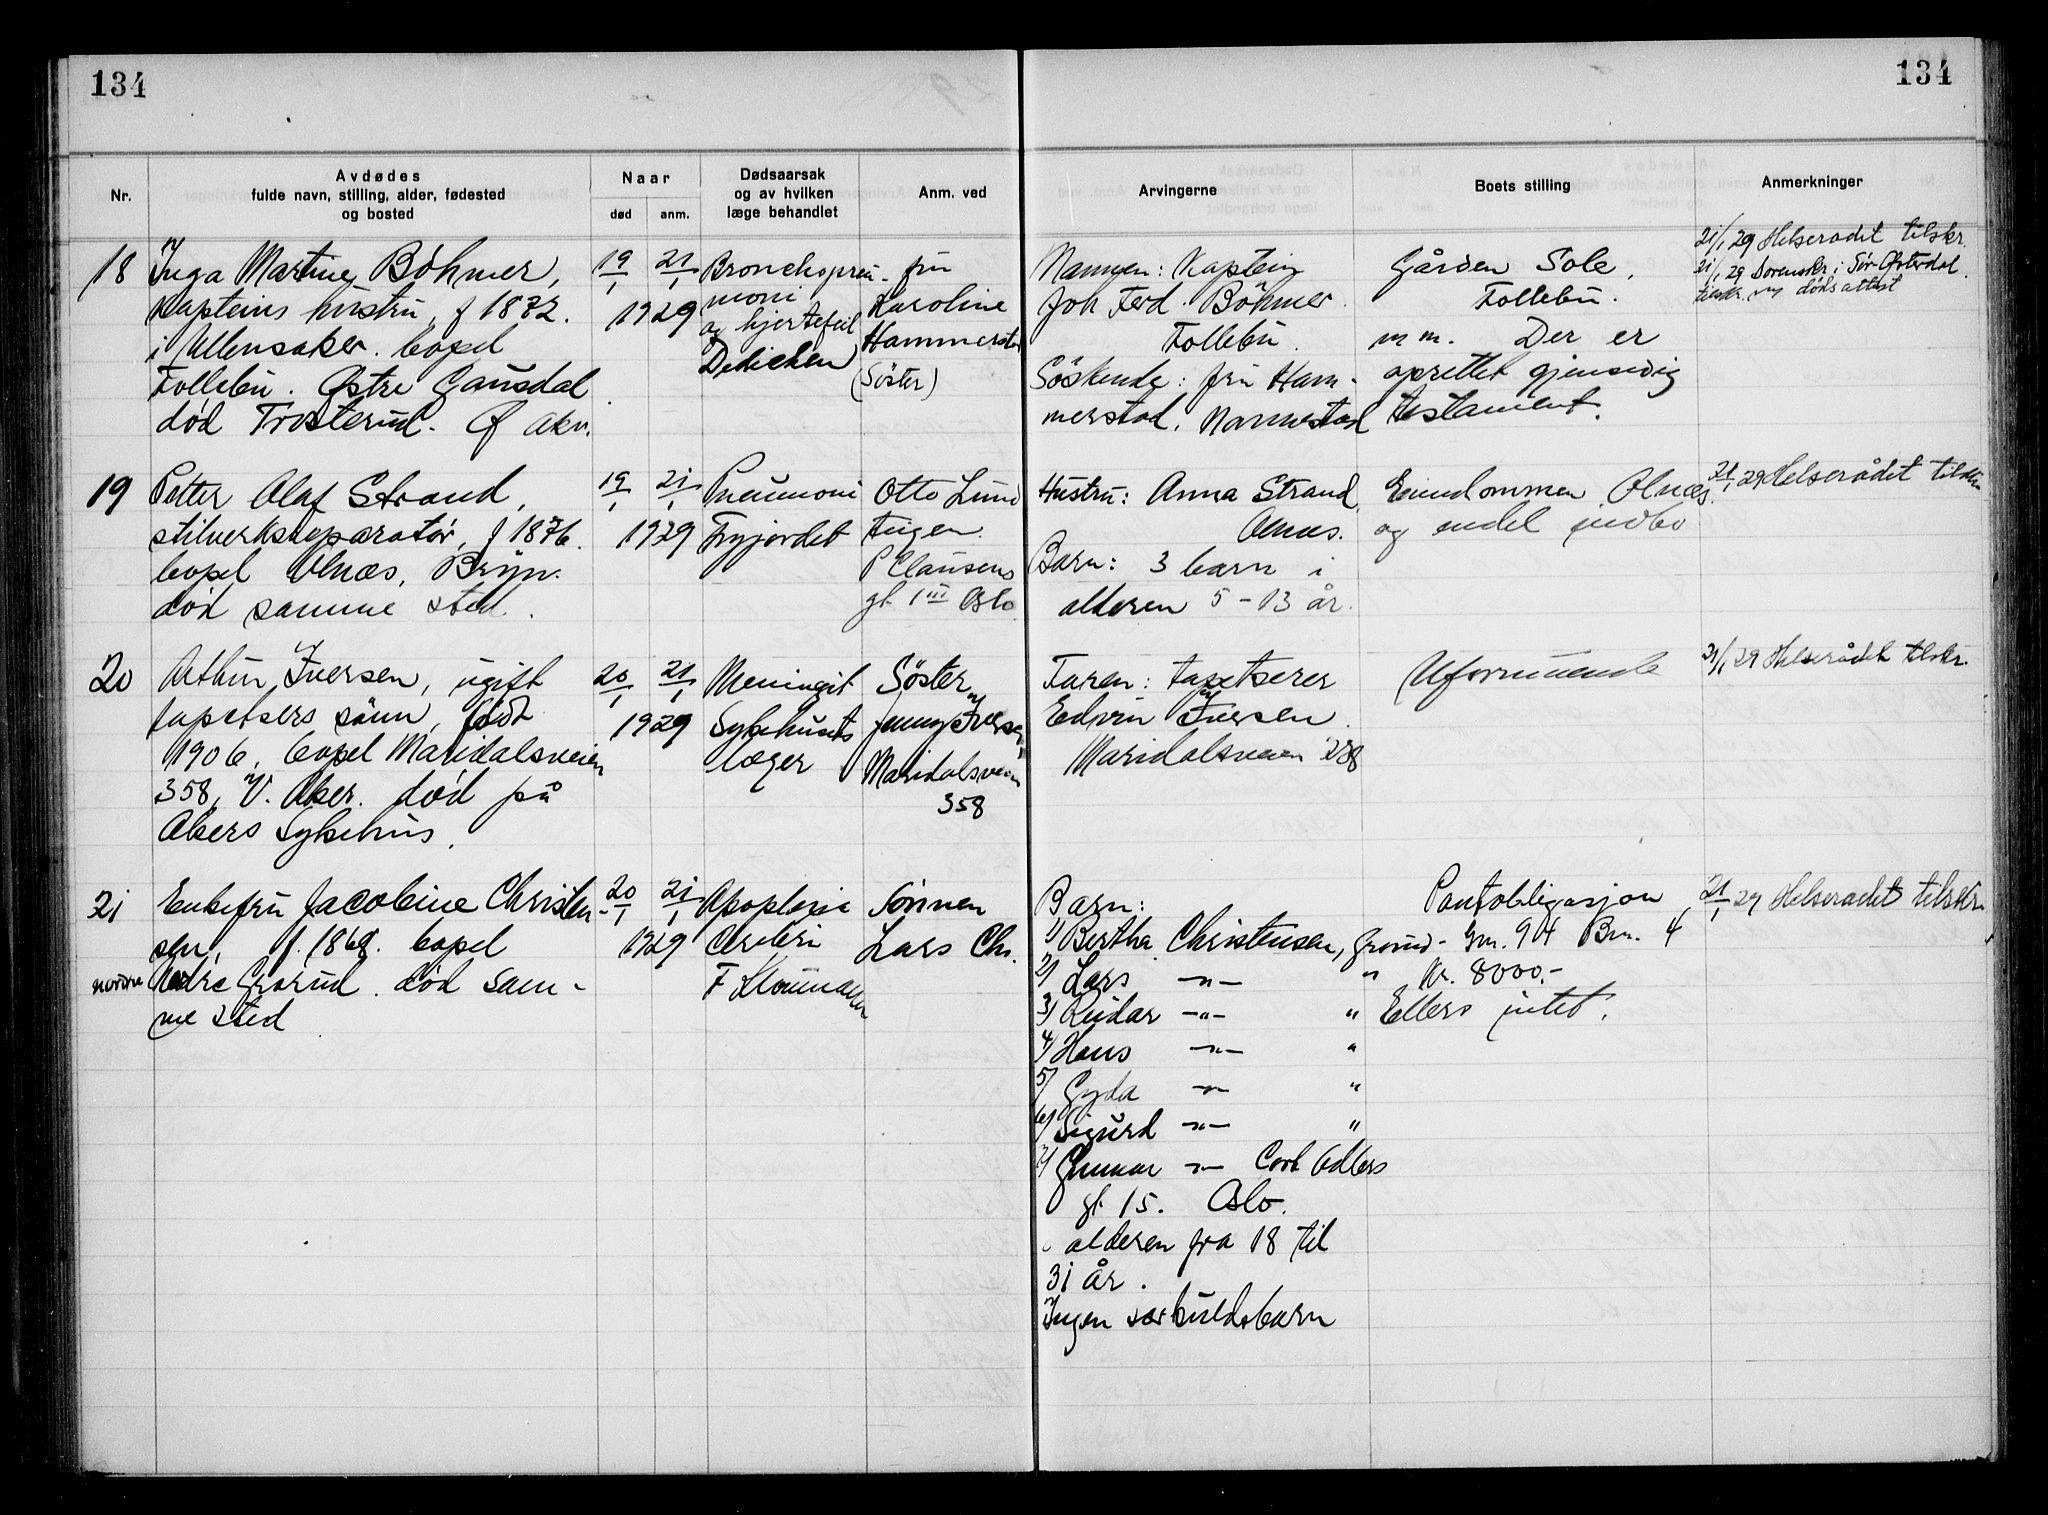 134
134
Nr.
Avdødes
fulde navn, stilling, alder, fødested
og bosted
Naar
død
anm.
Dødsaarsak
og av hvilken
læge behandlet
Anm. ved
Arvingerne
Boets stilling
Anmerkninger
18
Inga Martine Böhmer,
kapteins hustru, f 1872.
i Ullensaker. bopel
Follebu. Østre Gausdal
død Trosterud. Ø akr.
19/1 21/1
1929
Bronchopneu-
moni
og hjertefeil
Dedichen
fru
Karoline
Hammerstad
(Søster)
Mannen: Kaptein
Joh Ferd. Böhmer.
Follebu.
Søskende: fru Ham-
merstad, Nannestad
Gården Sole,
Follebu.
m m. Der er
oprettet gjensidig
testament.
21/1 29 Helserådet tilskr.
21/1 29 Sorenskr. i Sør-Østerdal
tilskr. m/ dødsattest
19
Petter Olaf Strand,
stilverksreparatør, f 1876.
bopel Alnæs, Bryn.
død samme sted.
19/1 21/1
1929
Pneumoni
Fryjordet
Otto Lund
teigen
P Clausens
gt 1 III Oslo
Hustru: Anna Strand
Alnæs.
Barn: 3 barn i
alderen 5-13 år.
Eiendommen Alnæs.
og endel indbo
21/1 29 Helserådet tilskr
20
Arthur Iversen, ugift
tapetsers sønn, født
1906, bopel Maridalsveien
358, V. Aker. død på
Akers Sykehus.
20/1 21/1
1929
Meningit
Sykehusets
læger
Søster
Jenny Iversen
Maridalsveien
358
Faren: tapetserer
Edvin Iversen.
Maridalsveien 358
Uformuende
21/1 29 Helserådet tilskr.
21
Enkefru Jacobine Christen-
sen, f. 1868. bopel
nordre Grorud. død sam-
me sted
20/1 21/1
1929
Apoplexia
Cerebri
F Kloumann
Sønnen
Lars Chr.
Barn:
1) Bertha Christensen, Grorud
2) Lars -"- "
3) Reidar -"- "
4) Hans -"- "
5) Gyda -"- "
6) Sigurd -"- "
7) Gunnar -"- Cort Adlers
gt 15. Oslo.
i alderen fra 18 til
31 år.
Ingen særkuldsbarn
Pantobligasjon
Gnr. 94 Bnr. 4
Kr. 8000.-
Ellers intet.
21/1 29 Helserådet tilskr.